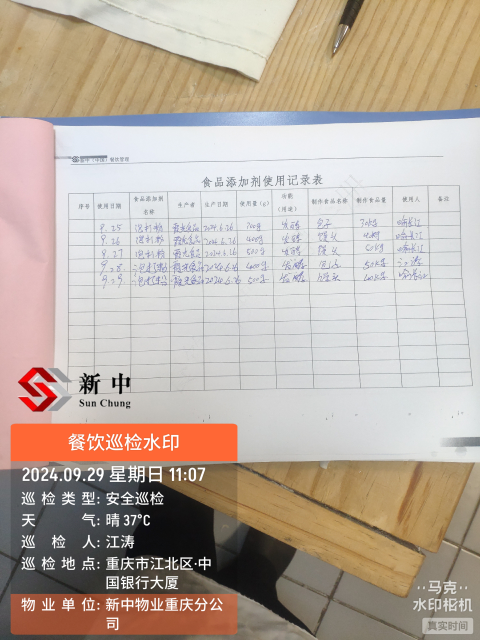 新中（中国）餐饮管理
食品添加剂使用记录表
序号 使用日期 食品添加剂名称 生产者 生产日期 使用量（g） 功能（用途） 制作食品名称 制作食品量 使用人 备注
9.25 泡打粉 2024.6.26 700g 发酵 包子 30kg
9.26 泡打粉 2024.6.26 400g 发酵 馒头
9.27 泡打粉 2024.6.26 500g 发酵 馒头 50kg
9.28 泡打粉 2024.6.26 400g 发酵 50kg 江涛
9.29 泡打粉 2024.6.26 500g 发酵 60kg
新中
Sun Chung
餐饮巡检水印
2024.09.29 星期日 11:07
巡检类型: 安全巡检
天气: 晴 37°C
巡检人: 江涛
巡检地点: 重庆市江北区·中
国银行大厦
物业单位: 新中物业重庆分公
司
马克
水印相机
真实时间